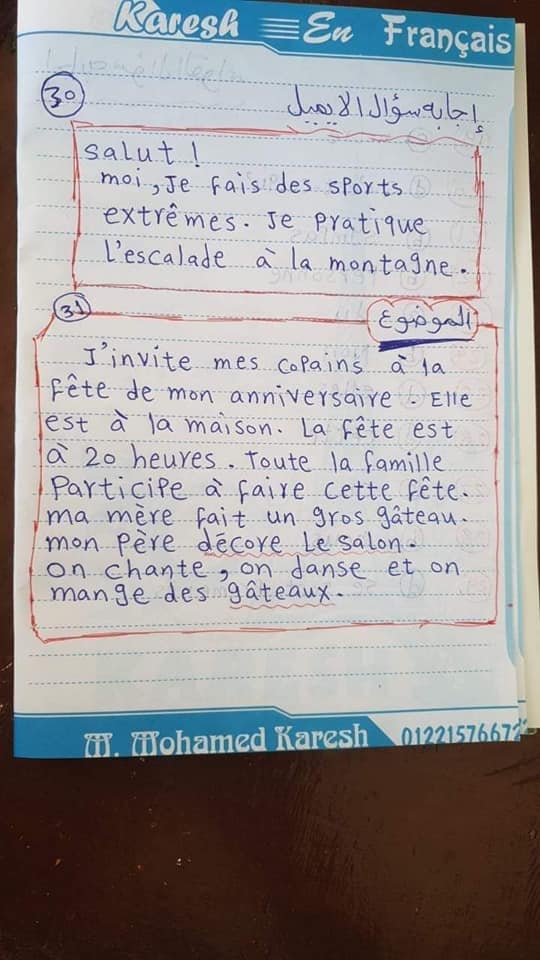 Karesh En Français
30
إجابة سؤال الايميل
salut !
moi, Je fais des sports
extrêmes. Je pratique
l'escalade à la montagne.
31
الموضوع
J'invite mes copains à la
fête de mon anniversaire. Elle
est à la maison. La fête est
à 20 heures. Toute la famille
Participe à faire cette fête.
ma mère fait un gros gâteau.
mon père décore le salon.
on chante, on danse et on
mange des gâteaux.
M. Mohamed Karesh